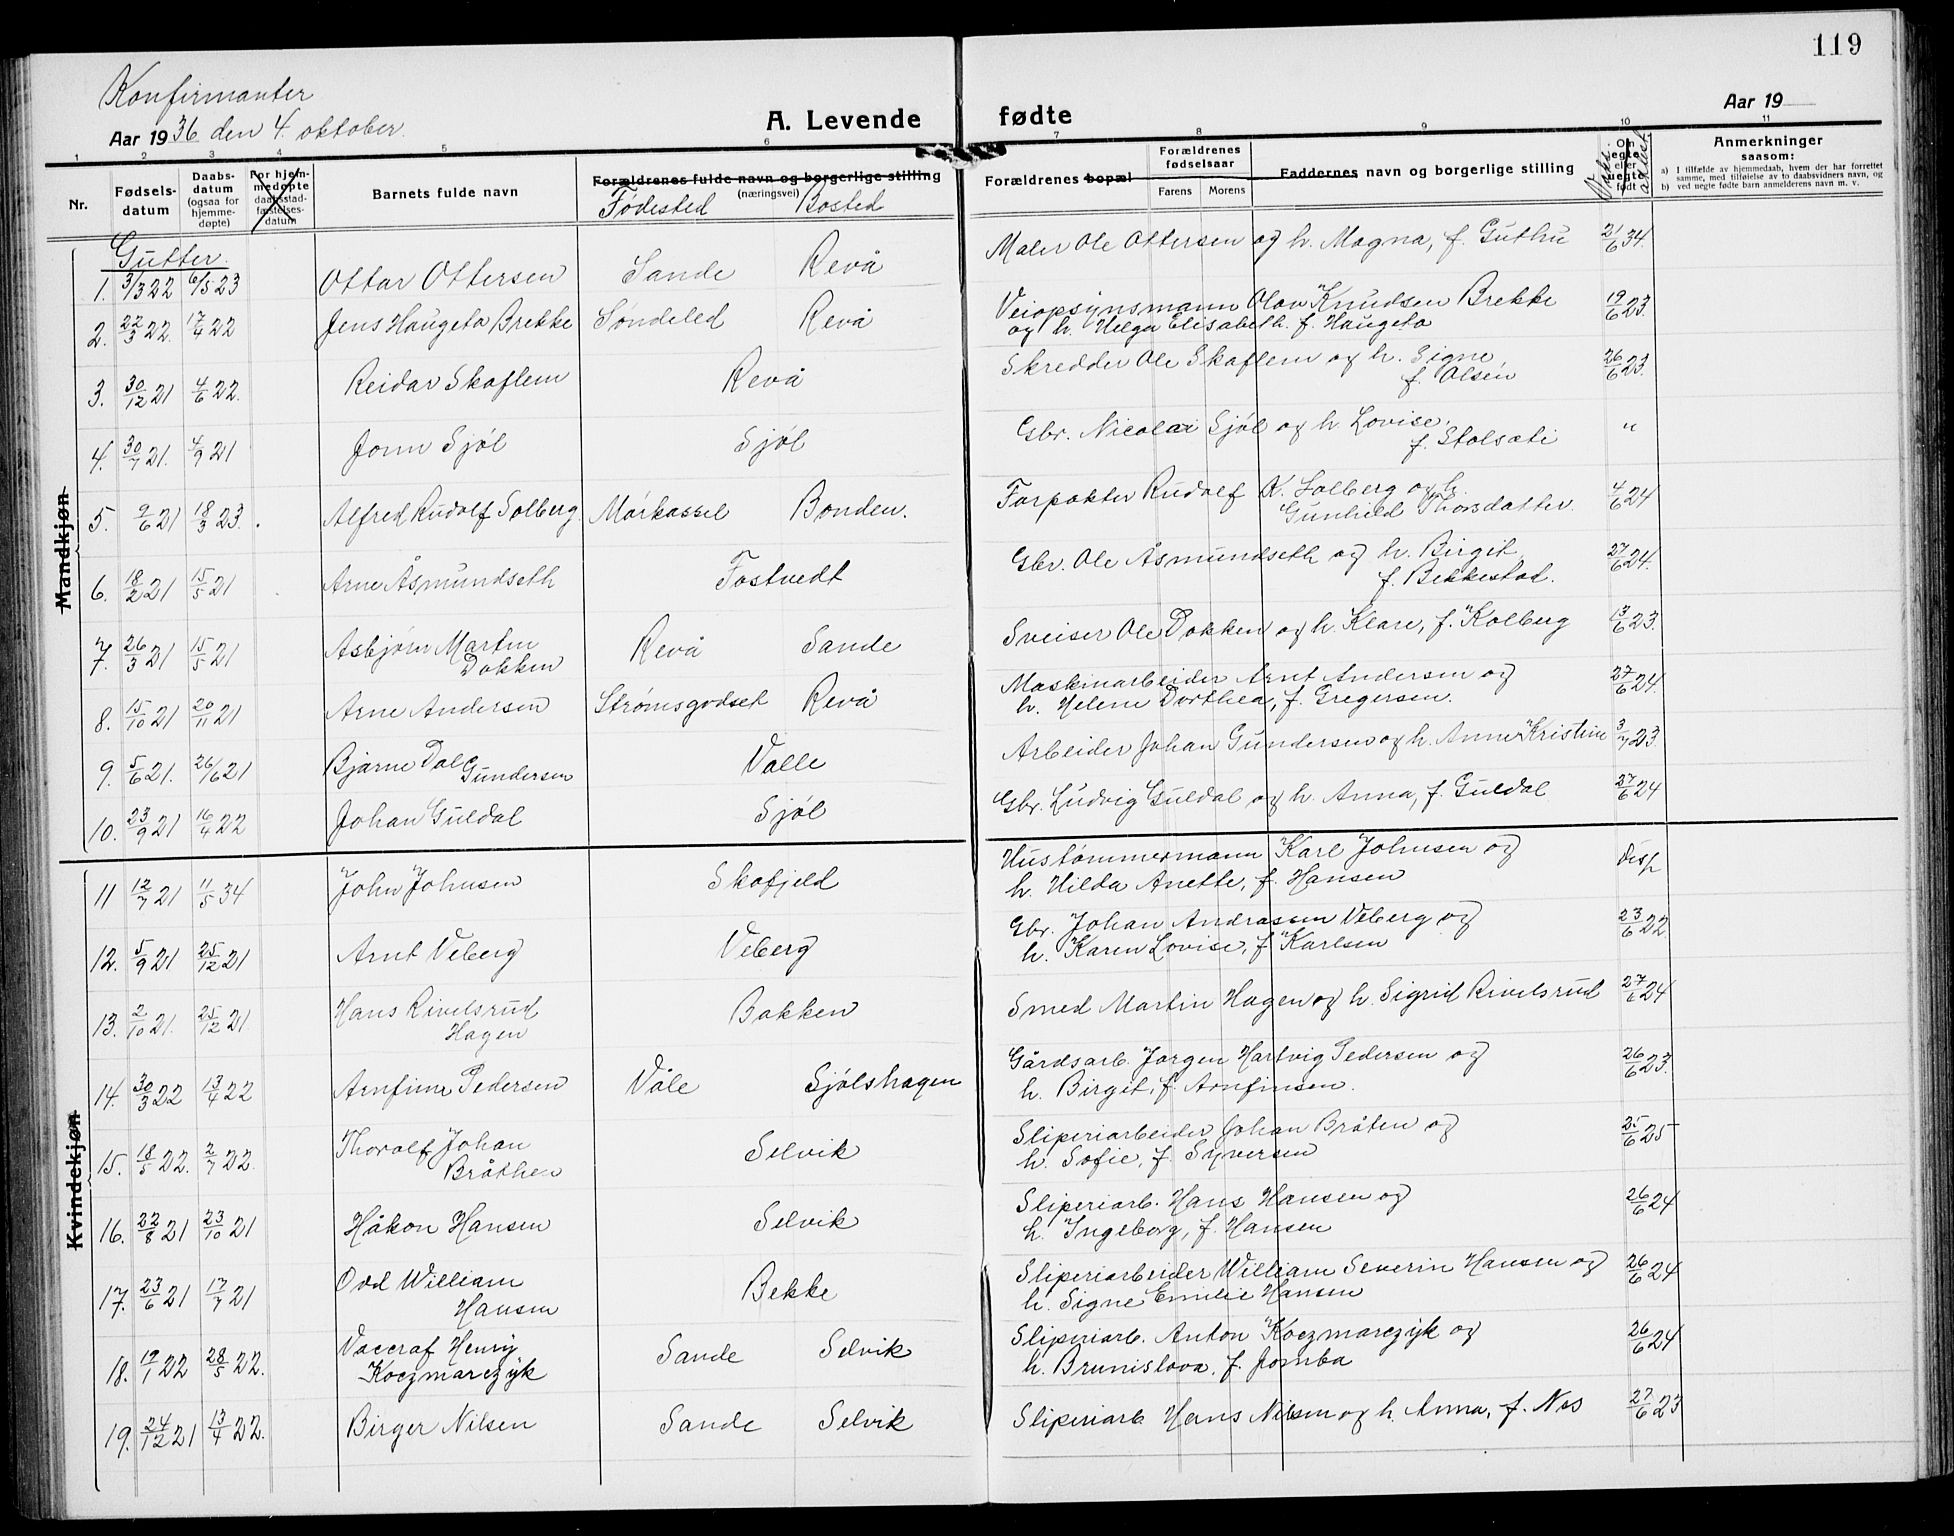 119
Konfirmanter
Aar 1936 den 4. oktober.
A. Levende fødte
Aar 19
1 2 3 4 5 6 7 8 9 10 11
Nr.
Fødsels-datum
Daabs-datum (ogsaa for hjemme-døpte)
For hjem-medøpte daabsstad-fæstelses-datum
Barnets fulde navn
Forældrenes fulde navn og borgerlige stilling (næringsvei)
Fødested Bosted
Forældrenes bopæl
Forældrenes fødselsaar
Farens Morens
Faddernes navn og borgerlige stilling
Om egte eller uegte født
Anmerkninger
saasom:
a) I tilfælde av hjemmedaab, hvem der har forrettet samme, med tilføielse av to daabsvidners navn, og
b) ved uegte fødte barn anmelderens navn m. v.
Mandkjøn
Gutter.
1. 3/3 22 6/5 23 Ottar Ottersen Sande Revå Maler Ole Ottersen og h. Magna, f. Guthu 21/6 34.
2. 22/3 22. 17/4 22 Jens Haugeto Brekke Søndeled Revå Veiopsynsmann Olav Knudsen Brekke
og h. Helga Elisabeth. f. Haugeto 19/6 23.
3. 30/12 21 4/6 22. Reidar Skaflem Revå Skredder Ole Skaflem og h. Signe,
f. Olsen 26/6 23.
4. 30/7 21. 4/9 21 Jonn Sjøl Sjøl Gbr. Nicolai Sjøl og h. Lovise,
f. Stolsati "
5. 9/6 21 18/3 23. Alfred Rudolf Solberg Mørkassel Bonden. Forpakter Rudolf K. Solberg og h.
Gunhild Thorsdatter. 4/6 24
6. 18/2 21 15/5 21 Arne Åsmundseth Fostvedt Gbr. Ole Åsmundseth og h. Birgit,
f. Bekkestad. 27/6 24.
7. 26/3 21 15/5 21 Asbjørn Martin
Dokken Revå Sande Sveiser Ole Dokken og h. Klare, f. Kolberg 13/6 23.
8. 15/10 21 20/11 21 Arne Andersen Strømsgodset Revå Maskinarbeider Arnt Andersen og
h. Helene Dorthea, f. Gregersen. 27/6 24.
9. 5/6 21. 26/6 21 Bjarne Dal
Gundersen Valle Arbeider Johan Gundersen og h. Anne Kristine 3/7 23.
10. 23/9 21 16/4 22 Johan Guldal Sjøl Gbr. Ludvig Guldal og h. Anna, f. Guldal 27/6 24
Kvindekjøn
11 12/7 21 11/5 34 John Johnsen Skafjeld Hustømmermann Karl Johnsen og
h. Hilda Anette, f. Hansen Disp
12. 5/9 21 25/12 21 Arnt Veberg Veberg Gbr. Johan Andrassen Veberg og
h. Karen Lovise, f Karlsen 23/6 22.
13. 2/10 21. 25/12 21 Hans Rivelsrud
Hagen Bakken Smed Martin Hagen og h. Sigrid Rivelsrud 27/6 24
14. 30/3 22 13/4 22 Arnfinn Pedersen Våle Sjølshagen Gårdsarb. Jørgen Hartvig Pedersen og
h. Birgit, f. Arnfinsen. 26/6 23.
15. 18/5 22. 2/7 22. Thoralf Johan
Bråthen Selvik Sliperiarbeider Johan Bråten og
h. Sofie, f. Syversen 25/6 25
16. 22/8 21 23/10 21 Håkon Hansen Selvik Sliperiarb. Hans Hansen og
h. Ingeborg, f. Hansen 26/6 24
17. 23/6 21 17/7 21 Odd William
Hansen Bekke Sliperiarbeider William Severin Hansen og
h. Signe Emilie Hansen 26/6 24
18. 19/1 22 28/5 22. Vaceraf Henry
Koczmarczyk Sande Selvik Sliperiarb. Anton Koczmarczyk og
h. Brunislava, f. Jomba 26/6 24
19. 24/12 21 13/4 22. Birger Nilsen Sande Selvik Sliperiarb Hans Nilsen og h. Anna, f. Nes 27/6 23